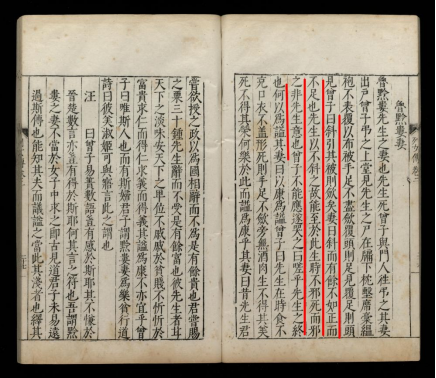 魯黔婁妻
魯黔婁先生之妻也先生死曾子與門人往弔之其妻
出戶曾子弔之上堂見先生之尸在牖下枕墼席稾縕
袍不表覆以布被手足不盡斂覆頭則足見覆足則頭
見曾子曰斜引其被則斂矣妻曰斜而有餘不如正而
不足也先生以不斜之故能至於此生時不邪死而邪
之非先生意也曾子不能應遂哭之曰嗟乎先生之終
也何以為謚其妻曰以康為謚曾子曰先生在時食不
充口衣不蓋形死則手足不斂旁無酒肉生不得其美
死不得其榮何樂於此而謚為康乎其妻曰昔先生君
嘗欲授之政以為國相辭而不為是有餘貴也君嘗賜
之粟三十鍾先生辭而不受是有餘富也彼先生者甘
天下之淡味安天下之卑位不戚戚於貧賤不忻忻於
富貴求仁而得仁求義而得義其謚為康不亦宜乎曾
子曰唯斯人也而有斯婦君子謂黔婁妻為樂貧行道
詩曰彼美淑姬可與寤言此之謂也
汪 曰曾子易簀數語蓋有感於斯耶其不慊於
晉楚數言亦宜有得於斯耶何其言之符也吾謂黔
婁之妻不當於女子中求之即古見道君子未易逮
過斯傳也能知其夫而議謚之當此其淺者也繹其